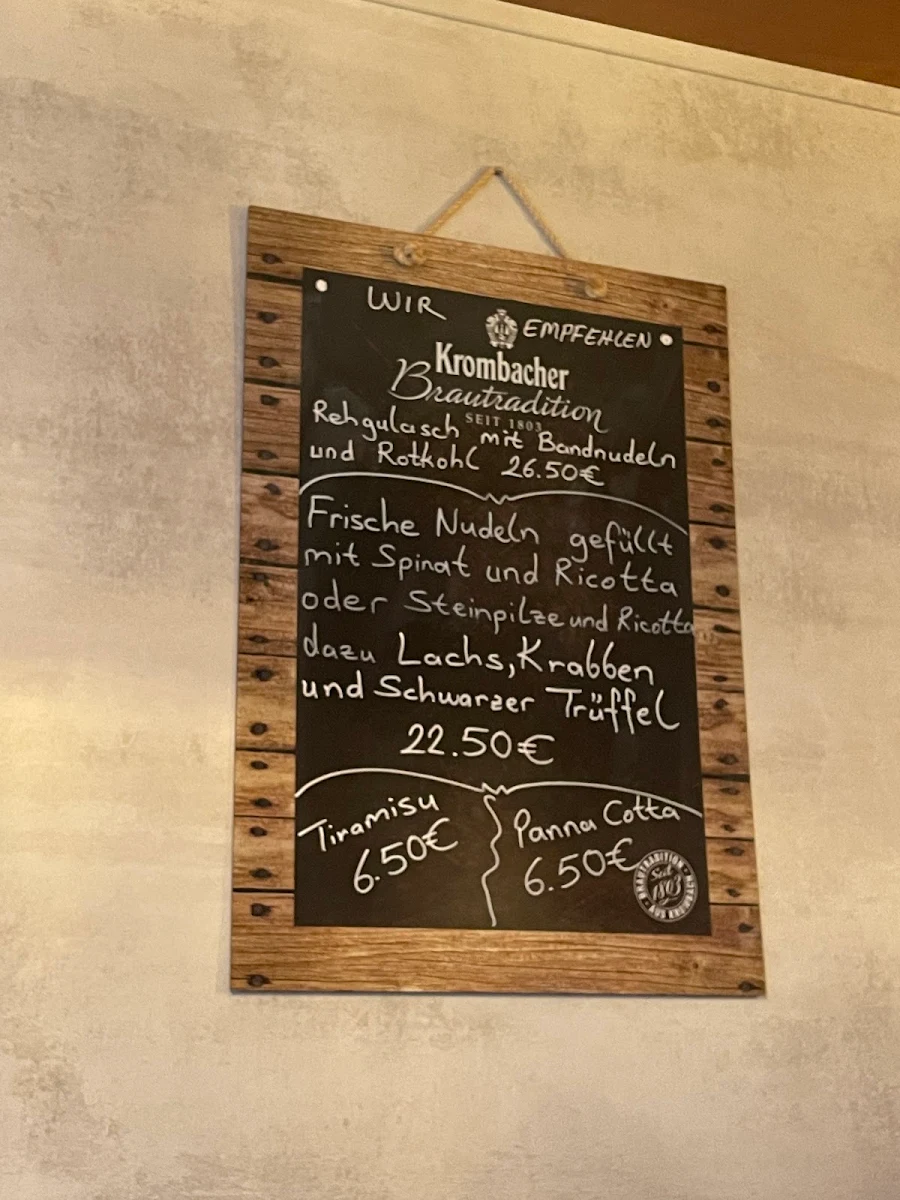 WIR EMPFEHLEN
Krombacher
Brautradition
SEIT 1803
Rehgulasch mit Bandnudeln
und Rotkohl 26.50€
Frische Nudeln gefüllt
mit Spinat und Ricotta
oder Steinpilze und Ricotta
dazu Lachs, Krabben
und Schwarzer Trüffel
22.50€
Tiramisu
6.50€
Panna Cotta
6.50€
BRAUTRADITION
Seit
1803